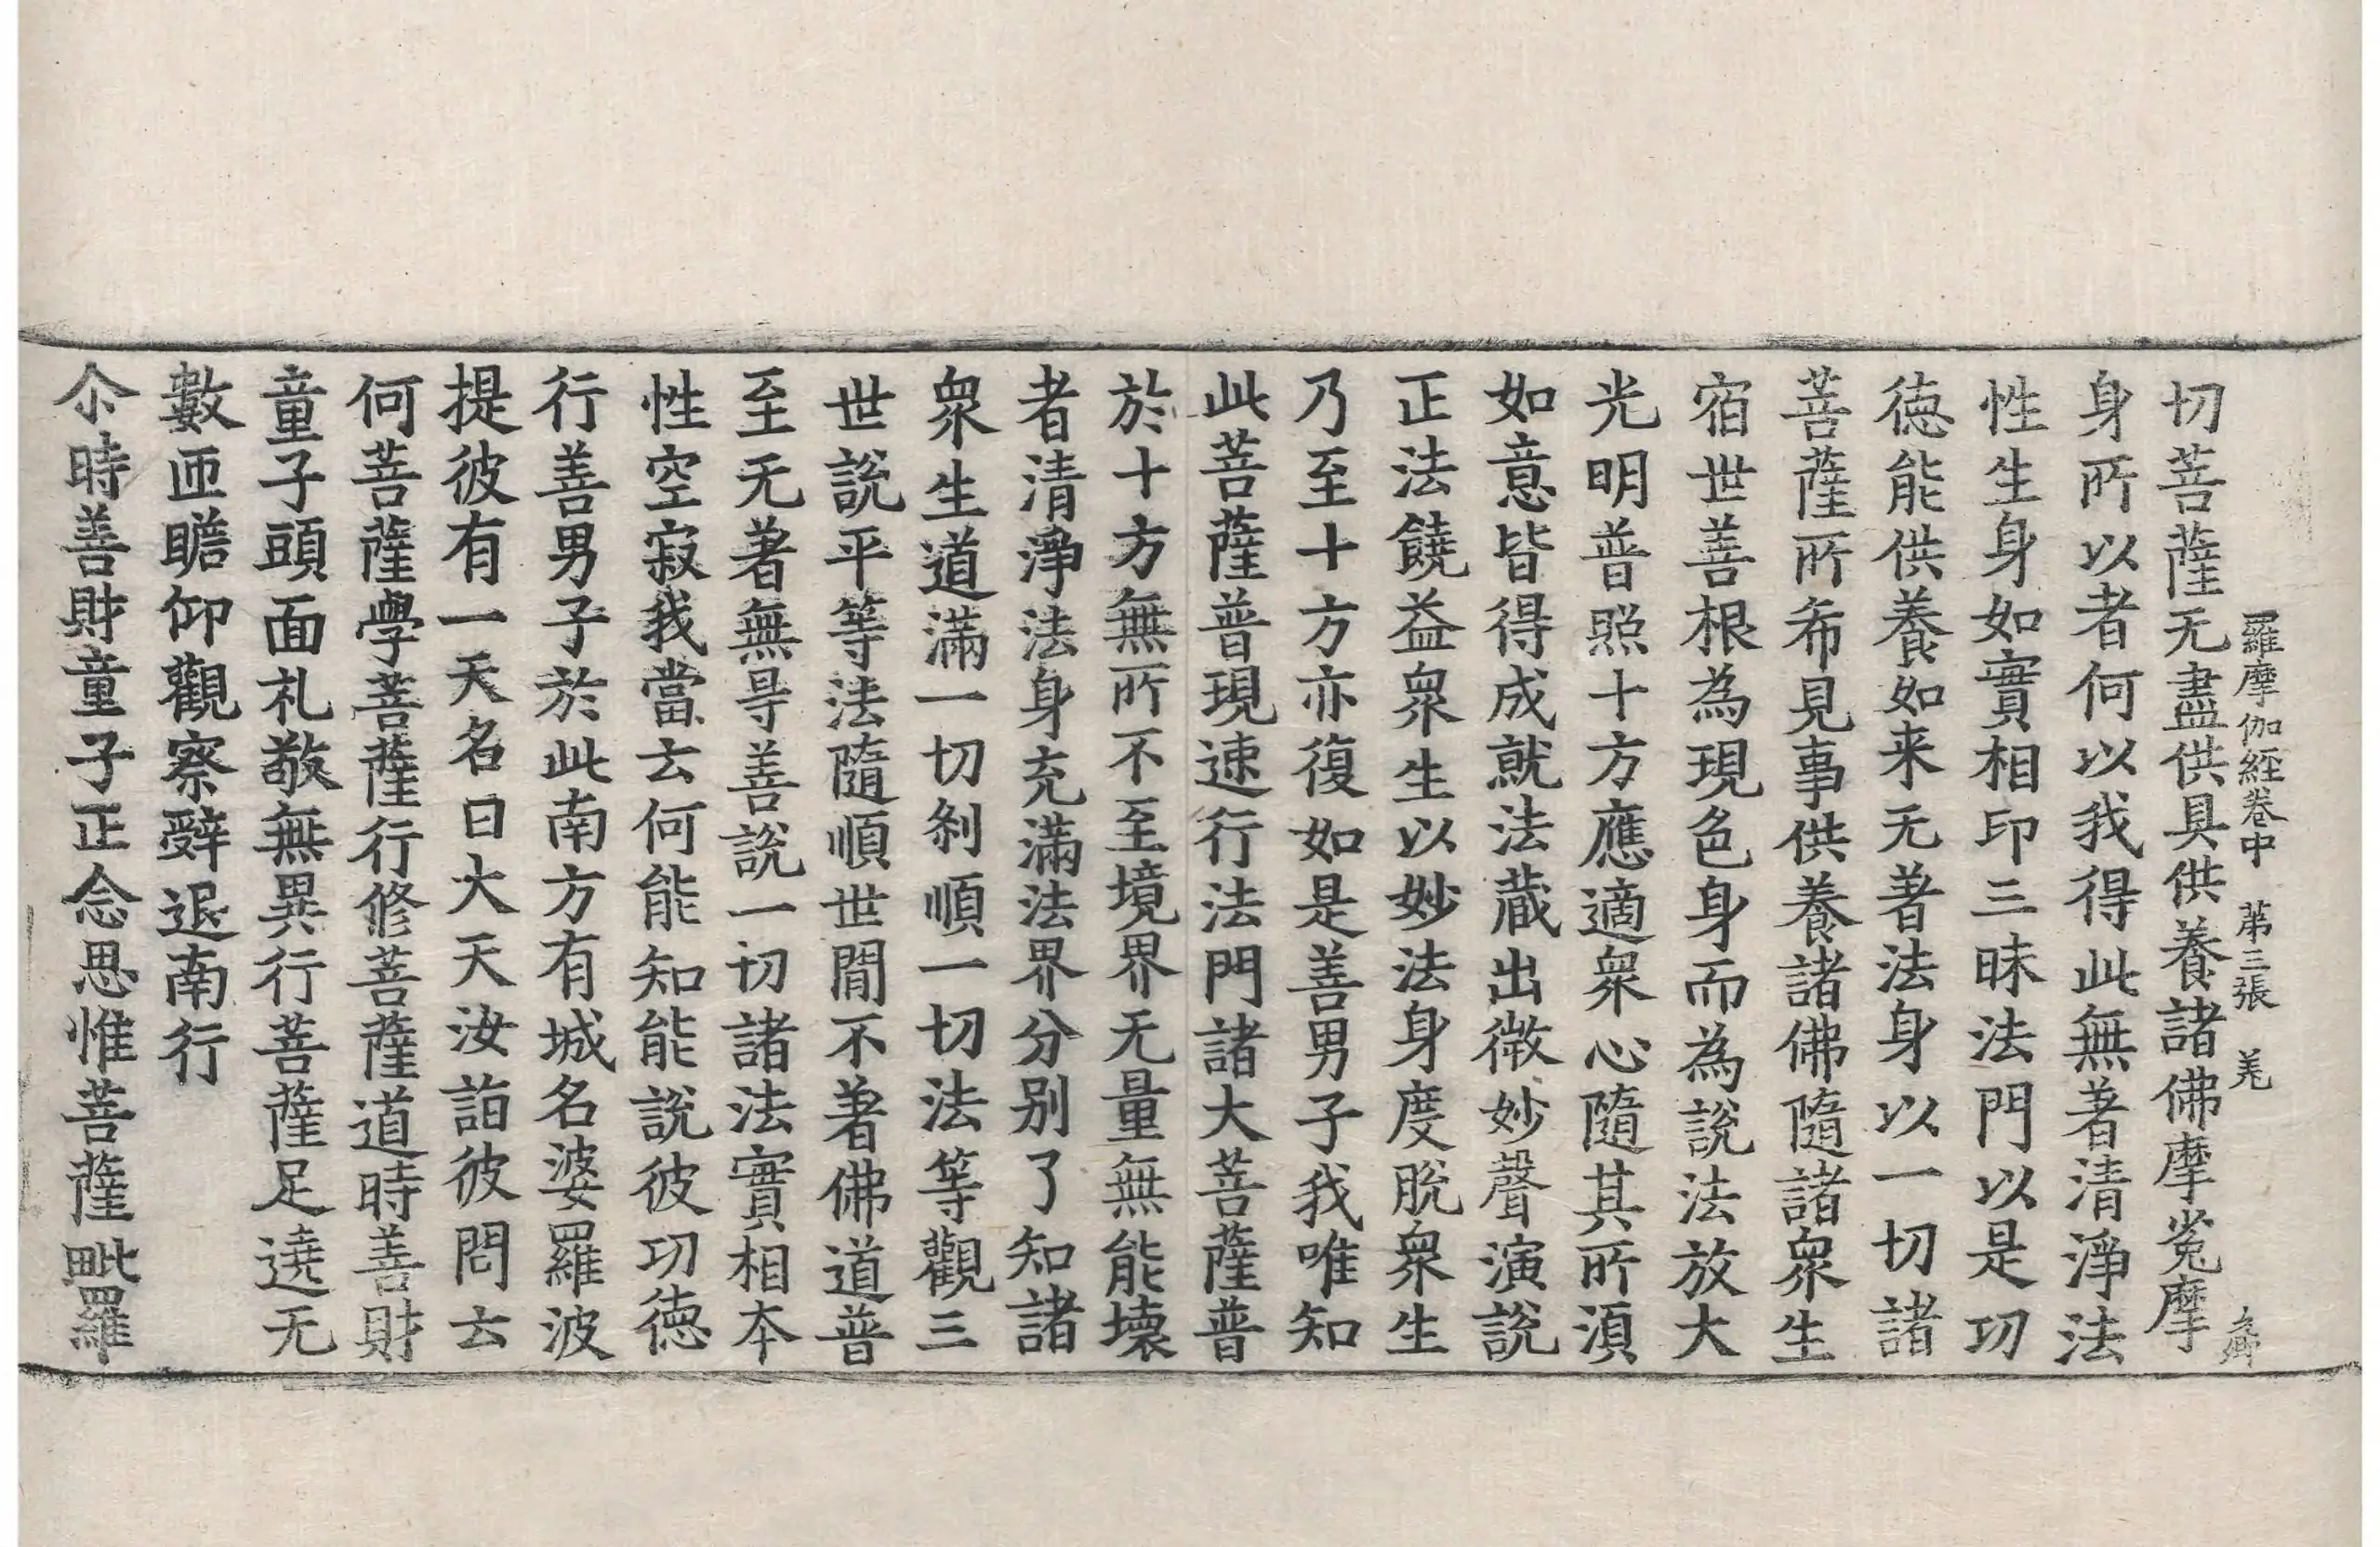 羅摩伽經卷中 第三張 羌
切菩薩无盡供具供養諸佛摩㝹摩
身所以者何以我得此無著清淨法
性生身如實相印三昧法門以是功
德能供養如来无著法身以一切諸
菩薩所希見事供養諸佛隨諸衆生
宿世善根為現色身而為說法放大
光明普照十方應適衆心隨其所湏
如意皆得成就法蔵出微妙聲演說
正法饒益衆生以妙法身度脫衆生
乃至十方亦復如是善男子我唯知
此菩薩普現速行法門諸大菩薩普
於十方無所不至境界无量無能壊
者清淨法身充滿法界分別了知諸
衆生道滿一切刹順一切法等觀三
世說平等法隨順世間不著佛道普
至无著無㝵善說一切諸法實相本
性空寂我當云何能知能說彼功德
行善男子於此南方有城名婆羅波
提彼有一天名曰大天汝詣彼問云
何菩薩學菩薩行修菩薩道時善財
童子頭面礼敬無異行菩薩足遶无
數匝瞻仰觀察辭退南行
尒時善財童子正念思惟菩薩毗羅